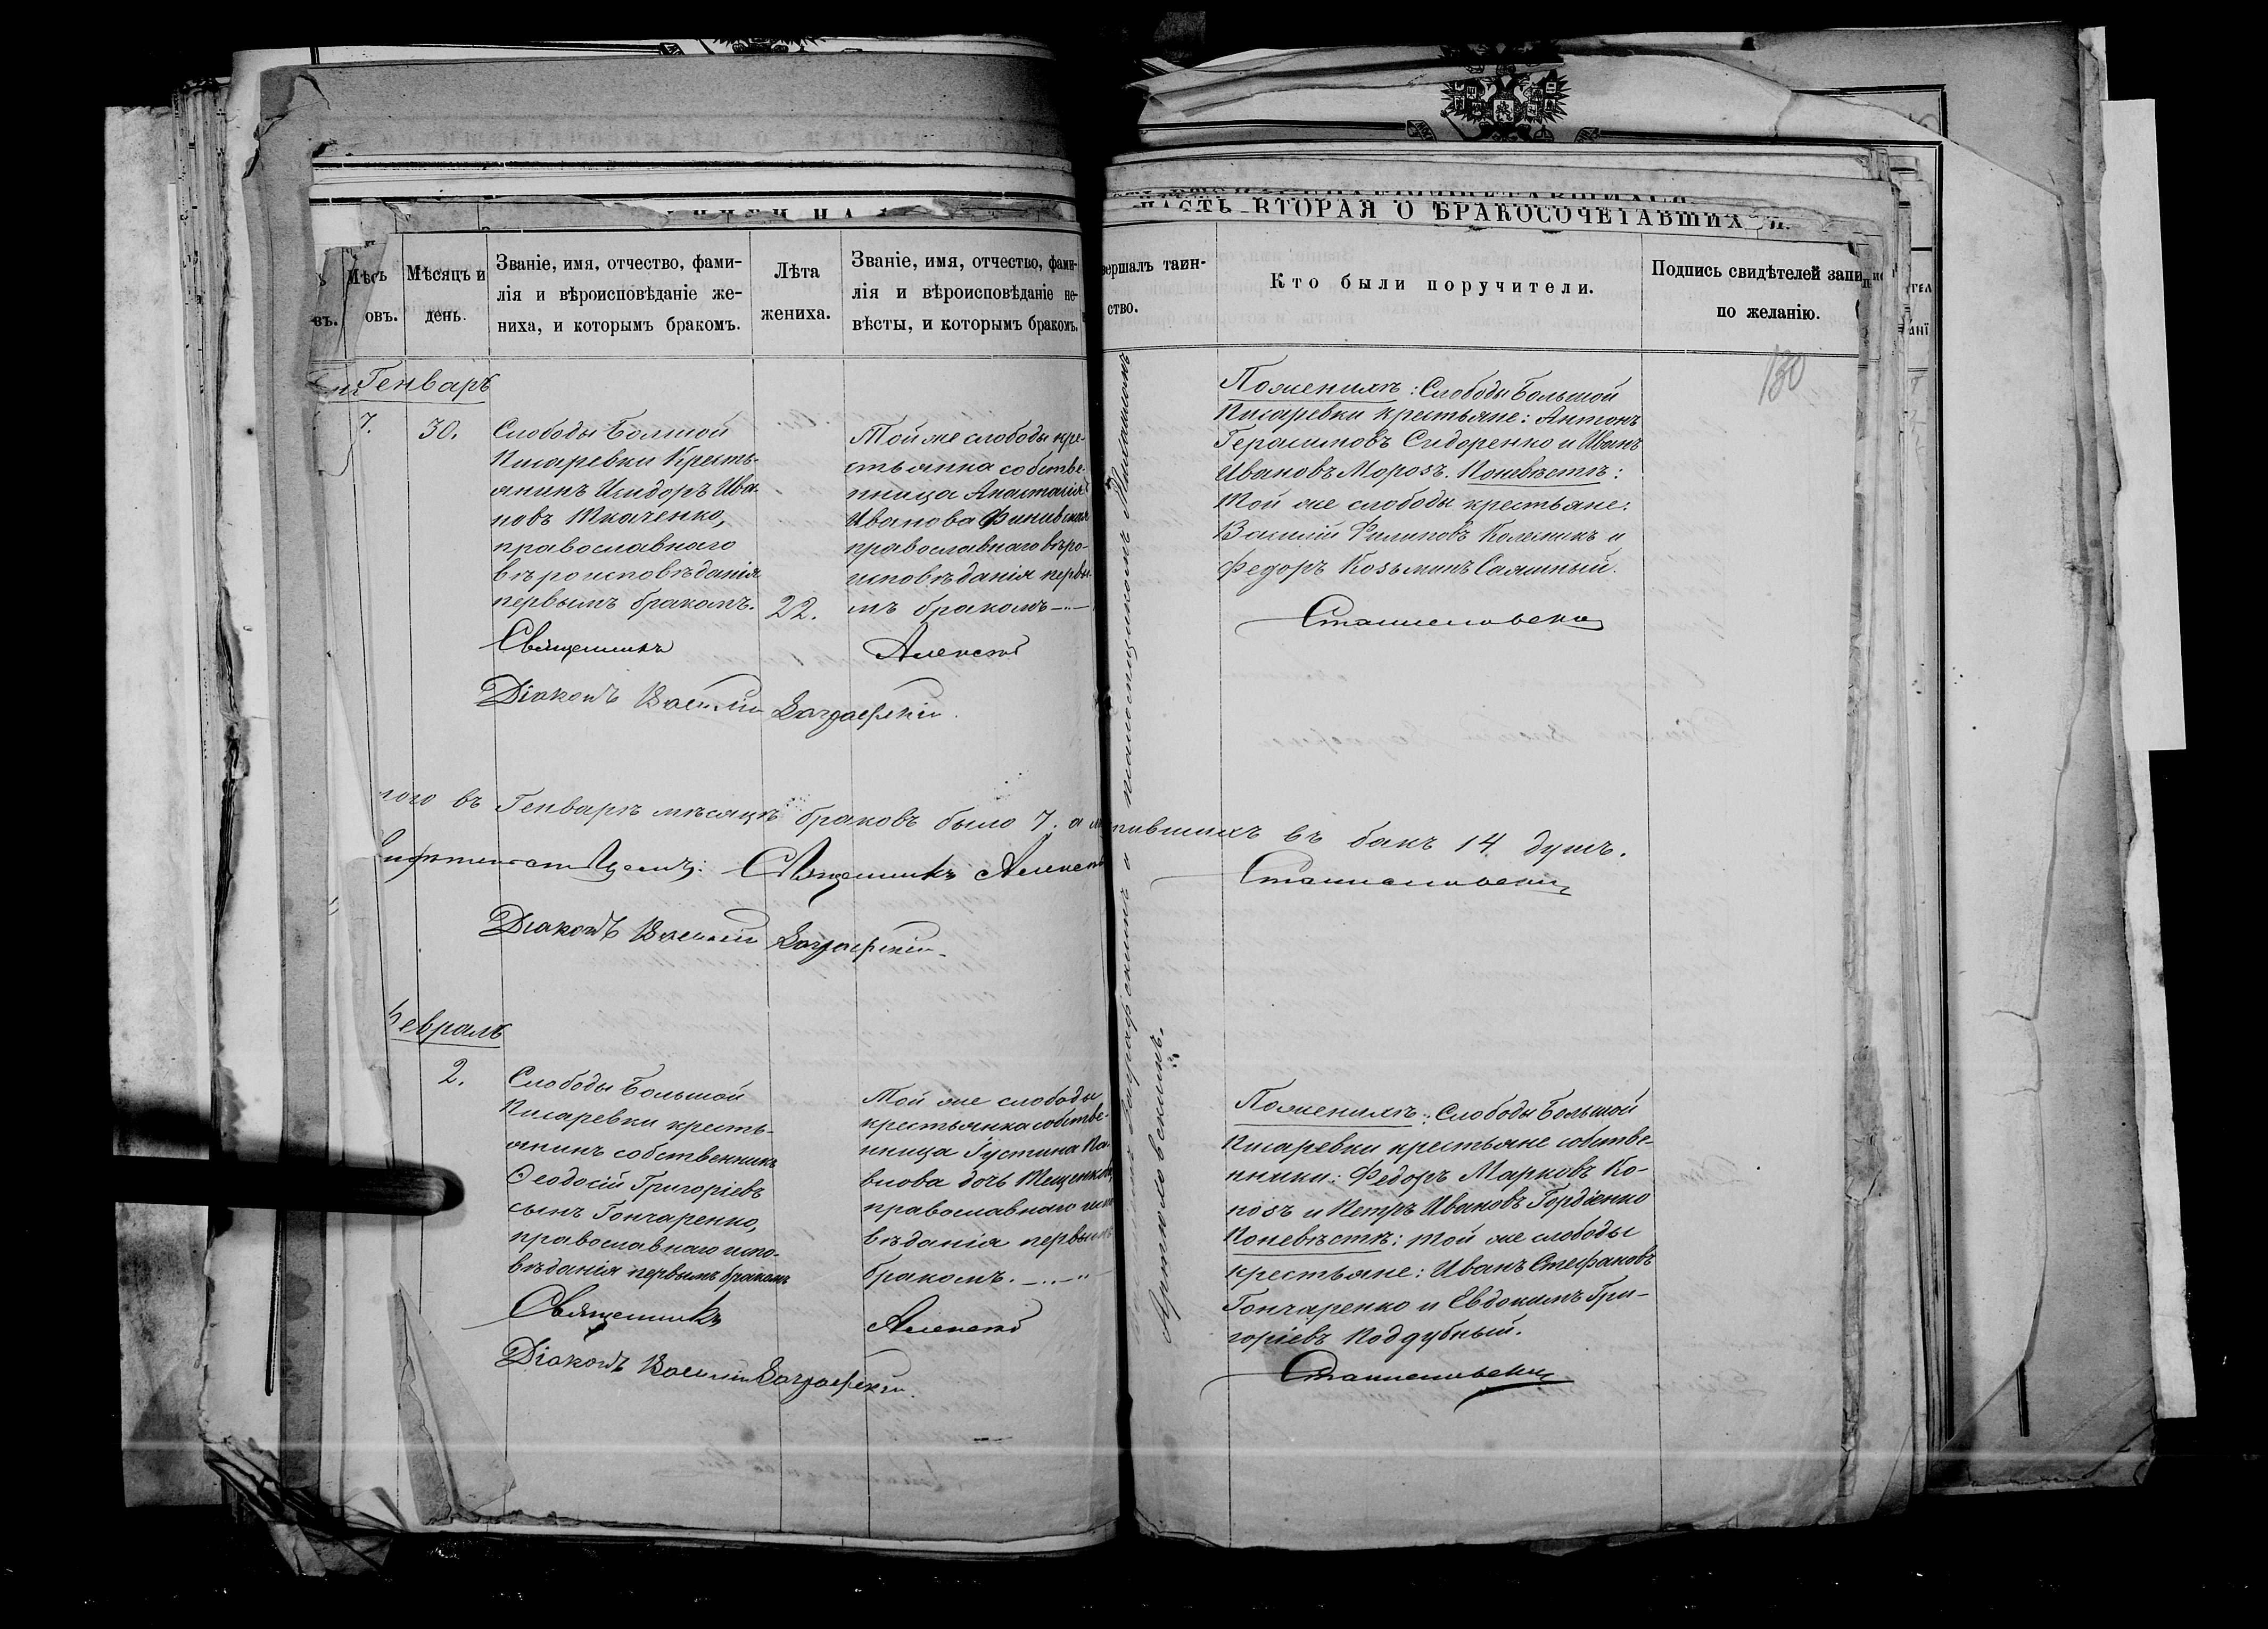 ЧАСТЬ ВТОРАЯ О БРАКОСОЧЕТАВШИХСЯ.
Мѣсяцъ и
день.
Званіе, имя, отчество, фами-
лія и вѣроисповѣданіе же-
ниха, и которымъ бракомъ.
Лѣта
жениха.
Званіе, имя, отчество, фами-
лія и вѣроисповѣданіе не-
вѣсты, и которымъ бракомъ.
вершалъ таин-
ство.
Кто были поручители.
Подпись свидѣтелей записи
по желанію.
130
Генварь
7.
30.
Слободы Большой
Писаревки Кресть-
янинъ Исидоръ Ива-
новъ Ткаченко,
православнаго
вѣроисповѣданія
первымъ бракомъ.
22.
Той же слободы кре-
стьянка собстве-
нница Анастасія
Иванова
православнаго вѣро-
исповѣданія первы-
мъ бракомъ
Поженихѣ: Слободы Большой
Писаревки крестьяне: Антонъ
Герасимовъ Сидоренко и Иванъ
Ивановъ Морозъ. Поневѣстѣ:
Той же слободы крестьяне:
Василій Филиповъ Колесникъ и
Федоръ Козьминъ
Священникъ Алексѣй Станиславскій
Діаконъ Василій
того въ Генварѣ мѣсяцѣ браковъ было 7. а въ бакъ 14 душъ.
Священникъ Алексѣй Станиславскій
Діаконъ Василій
Февраль
2.
Слободы Большой
Писаревки кресть-
янинъ собственникъ
Ѳеодосій Григоріевъ
сынъ Гончаренко,
православнаго испо-
вѣданія первымъ бракомъ
Той же слободы
крестьянка собстве-
нница Густина Па-
влова дочь Тещенкова
православнаго испо-
вѣданія первымъ
бракомъ.
Поженихѣ: Слободы Большой
Писаревки крестьяне собстве-
нники: Федоръ Марковъ Ко-
нозъ и Петръ Ивановъ Гордіенко
Поневѣстѣ: той же слободы
крестьяне: Иванъ Стефановъ
Гончаренко и Евдокимъ Гри-
горіевъ Поддубный.
Священникъ Алексѣй Станиславскій
Діаконъ Василій